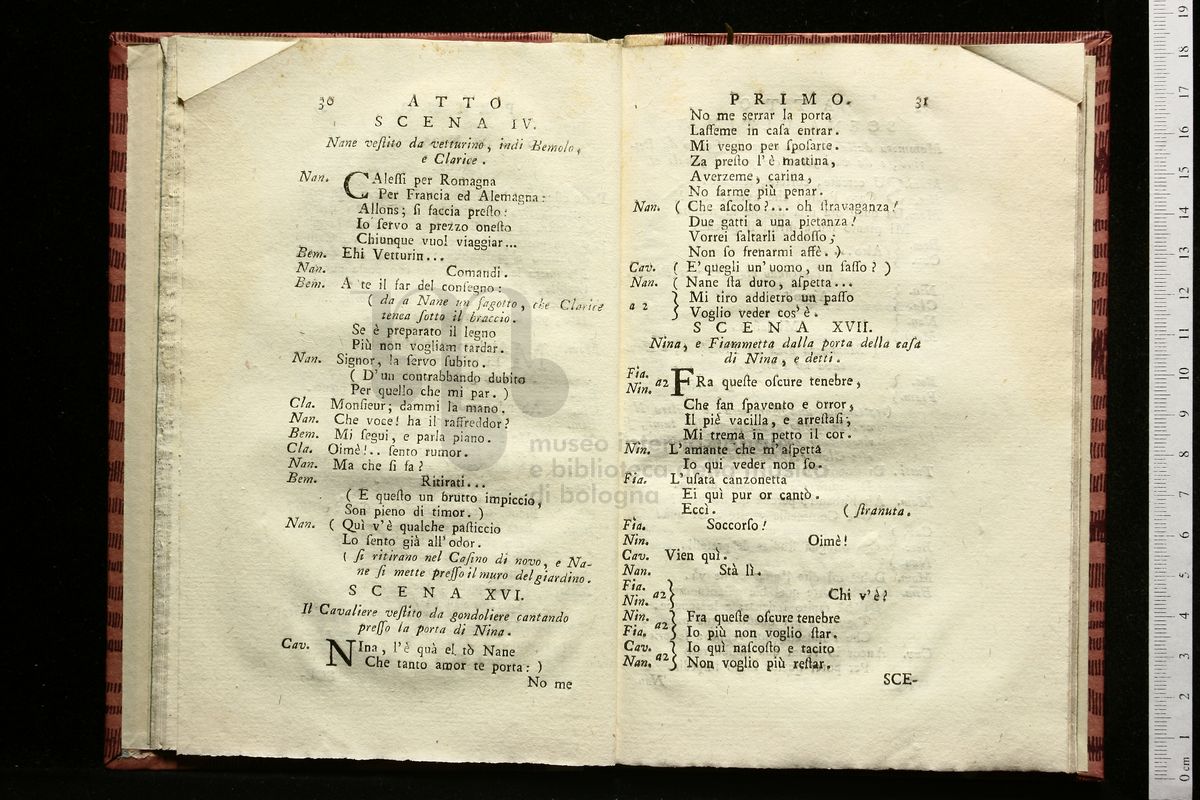 30 ATTO
SCENA IV.
Nane veſtito da vetturino, indi Bemolo,
e Clarice.
Nan. CAleſſi per Romagna
Per Francia ed Alemagna:
Allons; ſi faccia preſto:
Io ſervo a prezzo oneſto
Chiunque vuol viaggiar...
Bem. Ehi Vetturin...
Nan. Comandi.
Bem. A te il far del conſegno:
( da a Nane un fagotto, che Clarice
tenea ſotto il braccio.
Se è preparato il legno
Più non vogliam tardar.
Nan. Signor, la ſervo ſubito.
( D'un contrabbando dubito
Per quello che mi par. )
Cla. Monſieur; dammi la mano.
Nan. Che voce! ha il raffreddor?
Bem. Mi ſegui, e parla piano.
Cla. Oimè!.. ſento rumor.
Nan. Ma che ſi fa?
Bem. Ritirati...
( E queſto un brutto impiccio,
Son pieno di timor. )
Nan. ( Quì v'è qualche paſticcio
Lo ſento già all'odor.
( ſi ritirano nel Caſino di novo, e Na-
ne ſi mette preſſo il muro del giardino.
SCENA XVI.
Il Cavaliere veſtito da gondoliere cantando
preſſo la porta di Nina.
Cav. NIna, l'è quà el tò Nane
Che tanto amor te porta: )
No me
PRIMO. 31
No me serrar la porta
Laſſeme in caſa entrar.
Mi vegno per ſpoſarte.
Za preſto l'è mattina,
Averzeme, carina,
No farme più penar.
Nan. ( Che aſcolto?... oh ſtravaganza!
Due gatti a una pietanza!
Vorrei ſaltarli addoſſo;
Non ſo frenarmi affè. )
Cav. ( E' quegli un'uomo, un ſaſſo? )
Nan. ( Nane ſta duro, aſpetta...
a 2 } Mi tiro addietro un paſſo
Voglio veder cos'è.
SCENA XVII.
Nina, e Fiammetta dalla porta della caſa
di Nina, e detti.
Fia.
Nin. a2 FRa queſte oſcure tenebre,
Che fan ſpavento e orror,
Il piè vacilla, e arreſtaſi;
Mi trema in petto il cor.
Nin. L'amante che m'aſpetta
Io qui veder non ſo.
Fia. L'uſata canzonetta
Ei quì pur or cantò.
Eccì. ( ſtranuta.
Fia. Soccorſo!
Nin. Oimè!
Cav. Vien quì.
Nan. Stà lì.
Fia.
Nin. a2 } Chi v'è?
Nin. Fra queſte oſcure tenebre
Fia. a2 } Io più non voglio ſtar.
Cav. Io quì naſcoſto e tacito
Nan. a2 } Non voglio più reſtar.
SCE-
museo internazionale
e biblioteca della musica
di bologna
0 cm 1 2 3 4 5 6 7 8 9 10 11 12 13 14 15 16 17 18 19